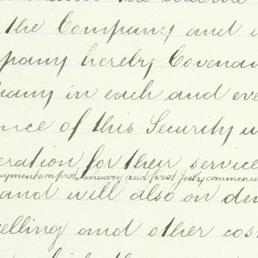 the Company and
pany hereby Covenan
pany in each and eve
nce of this Security
eration for their service
ayments on first January and first July commence
and will also on de
elling and other cos